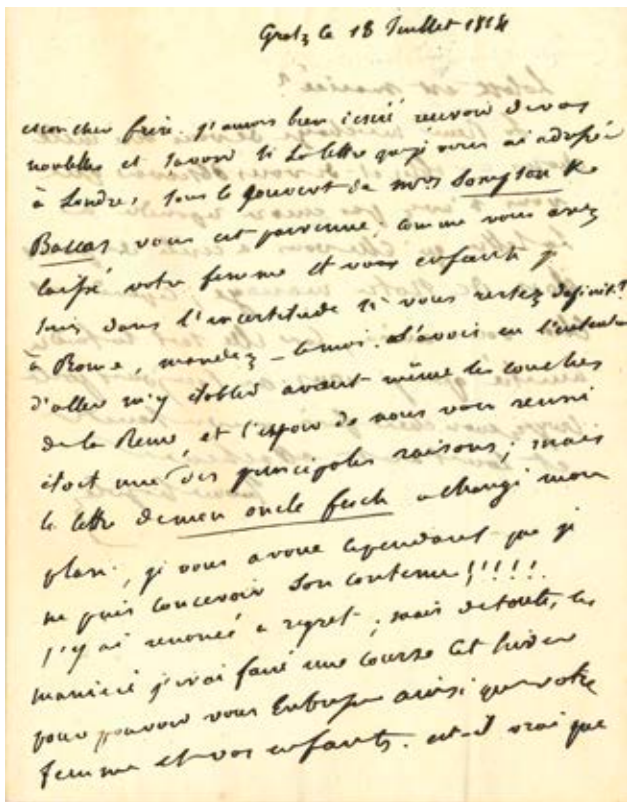 Gratz le 18 Juillet 1814
mon cher frère. j'aurois bien desiré recevoir de vos
nouvelles et savoir si la lettre que je vous ai adressée
à Londres, sous le couvert de mrs
vous est parvenue. comme vous avez
laissé votre femme et vos enfants je
suis dans l'incertitude si vous restez definit.t
à Rome, mandez-le moi. J'avois eu l'intention
d'aller m'y établir avant même les couches
de la Reine, et l'espoir de nous voir reuni
étoit une des principales raisons; mais
la lettre de mon oncle fesch a changé mon
plan, je vous avoue cependant que je
ne puis concevoir son contenu!!!!!
j'y ai renoncé a regret; mais de toutes les
manière j'irai faire une course cet hiver
pour pouvoir vous Embrasser ainsi que votre
femme et vos enfants. est-il vrai que